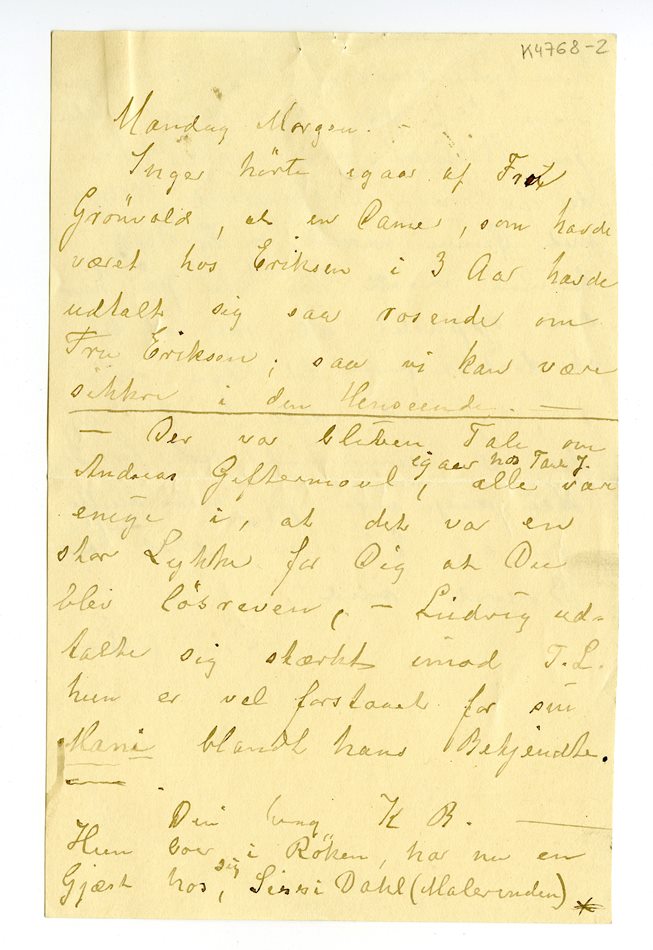 K4768-2
Mandag Morgen. -
Inger hörte igaar af Frk
Grönvold, at en Dame, som havde
været hos Eriksen i 3 Aar havde
udtalt sig saa rosende om
Fru Eriksen; saa vi kan være
sikkre i den Henseende. —
— Der var bleven Tale om
igaar hos Tone J.
Andreas Giftermaal, alle var
enige i, at det var en
stor Lykke for Dig at Du
blev lösreven, — Ludvig ud-
talte sig stærkt imod T. L.
hun er vel forstaaet for sin
Mani blandt hans Bekjendte.
Din K B. —
Hun boer i Röken, har nu en
Gjæst hos sig, Sissi Dahl (Malerinden)